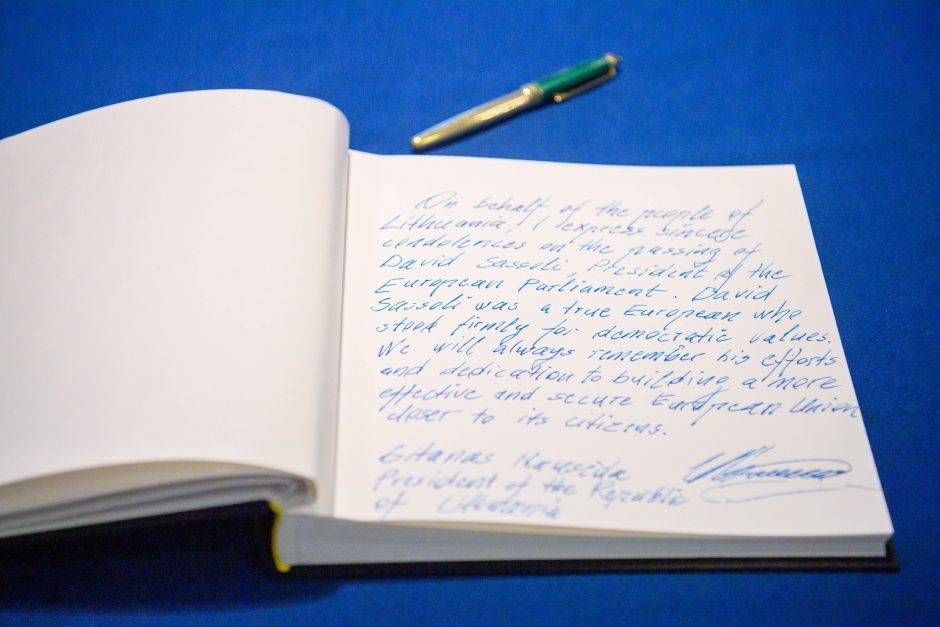 On behalf of the people of
Lithuania, I express sincere
condolences on the passing of
David Sassoli, President of the
European Parliament. David
Sassoli was a true European who
stood firmly for democratic values.
We will always remember his efforts
and dedication to building a more
effective and secure European Union
closer to its citizens.
Gitanas Nausėda
President of the Republic
of Lithuania